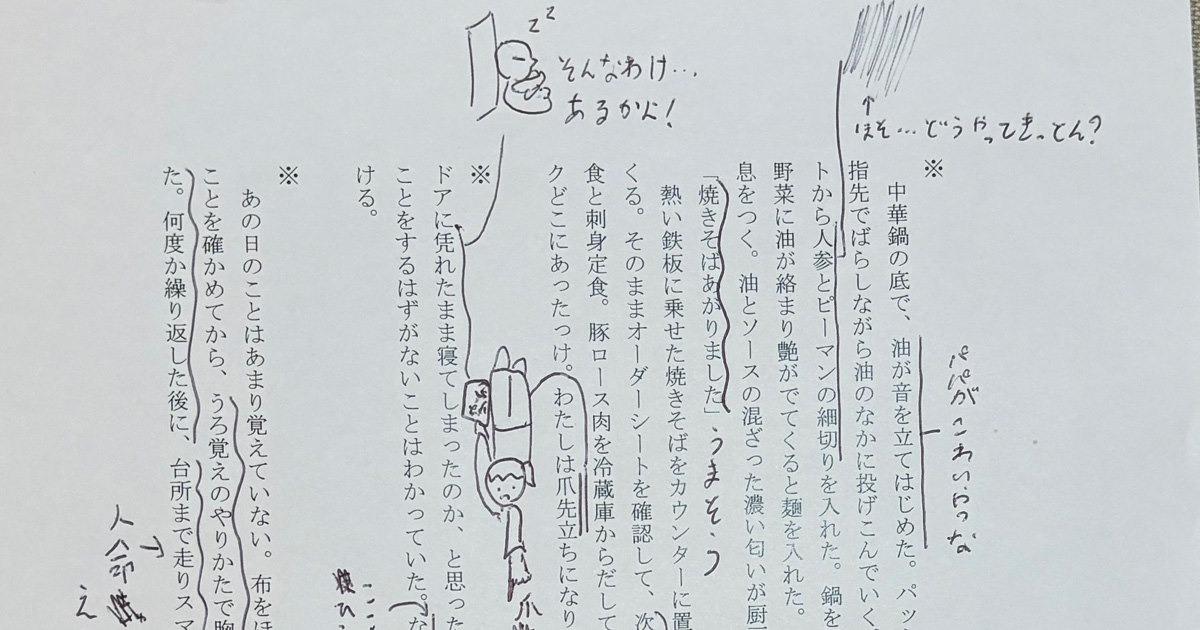 ※
中華鍋の底で、油が音を立てはじめた。パッ
指先でばらしながら油のなかに投げこんでいく。
トから人参とピーマンの細切りを入れた。鍋を
野菜に油が絡まり艶がでてくると麺を入れた。
息をつく。油とソースの混ざった濃い匂いが厨
「焼きそばあがりました」
熱い鉄板に乗せた焼きそばをカウンターに置
くる。そのままオーダーシートを確認して、次
食と刺身定食。豚ロース肉を冷蔵庫からだして
クどこにあったっけ。わたしは爪先立ちになり
※
ドアに凭れたまま寝てしまったのか、と思った
ことをするはずがないことはわかっていた。な
ける。
※
あの日のことはあまり覚えていない。布をほ
ことを確かめてから、うろ覚えのやりかたで胸
た。何度か繰り返した後に、台所まで走りスマ
↑
ほそ…どうやってきっとん?
zz
そんなわけ…
あるかい!
パパがこわいやつな
うまそう
人命
え